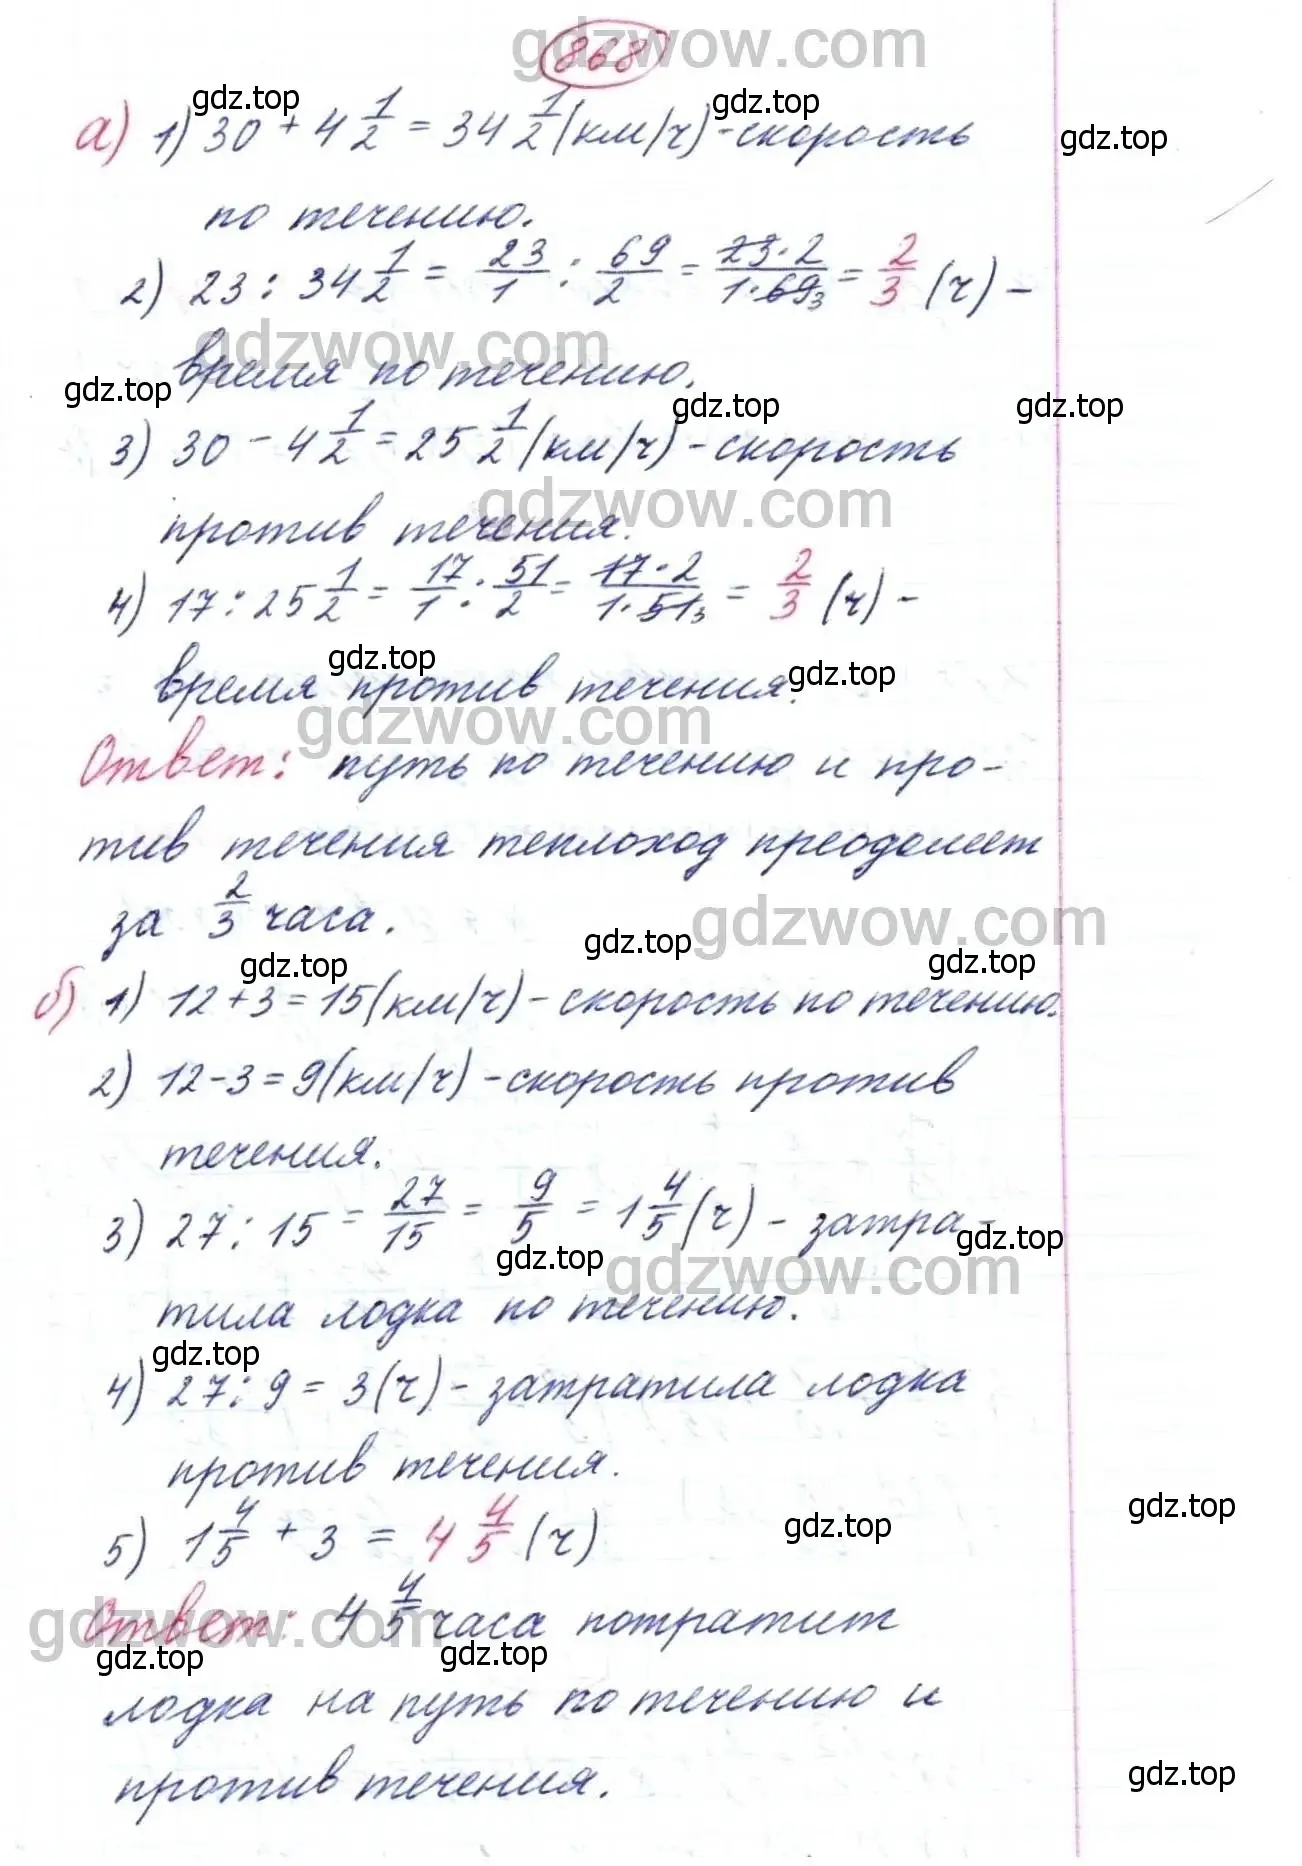 868
а) 1) 30 + 4 1/2 = 34 1/2 (км/ч) - скорость
по течению.
2) 23 : 34 1/2 = 23/1 : 69/2 = 23·2/1·69₃ = 2/3 (ч) -
время по течению.
3) 30 - 4 1/2 = 25 1/2 (км/ч) - скорость
против течения.
4) 17 : 25 1/2 = 17/1 : 51/2 = 17·2/1·51₃ = 2/3 (ч) -
время против течения.
Ответ: путь по течению и про-
тив течения теплоход преодолеет
за 2/3 часа.
б) 1) 12 + 3 = 15 (км/ч) - скорость по течению.
2) 12 - 3 = 9 (км/ч) - скорость против
течения.
3) 27 : 15 = 27/15 = 9/5 = 1 4/5 (ч) - затра-
тила лодка по течению.
4) 27 : 9 = 3 (ч) - затратила лодка
против течения.
5) 1 4/5 + 3 = 4 4/5 (ч)
Ответ: 4 4/5 часа потратит
лодка на путь по течению и
против течения.
gdzwow.com
gdz.top
gdz.top
gdz.top
gdzwow.com
gdz.top
gdz.top
gdz.top
gdzwow.com
gdz.top
gdz.top
gdzwow.com
gdzwow.com
gdz.top
gdz.top
gdz.top
gdz.top
gdz.top
gdzwow.com
gdz.top
gdz.top
gdz.top
gdzwow.com
gdz.top
gdz.top
gdz.top